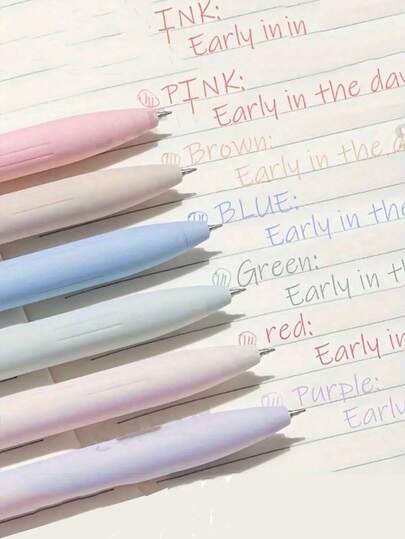 INK:
Early in in
PINK:
Early in the day
Brown:
Early in the
BLUE:
Early in the
Green:
Early in th
red:
Early in
Purple:
Early